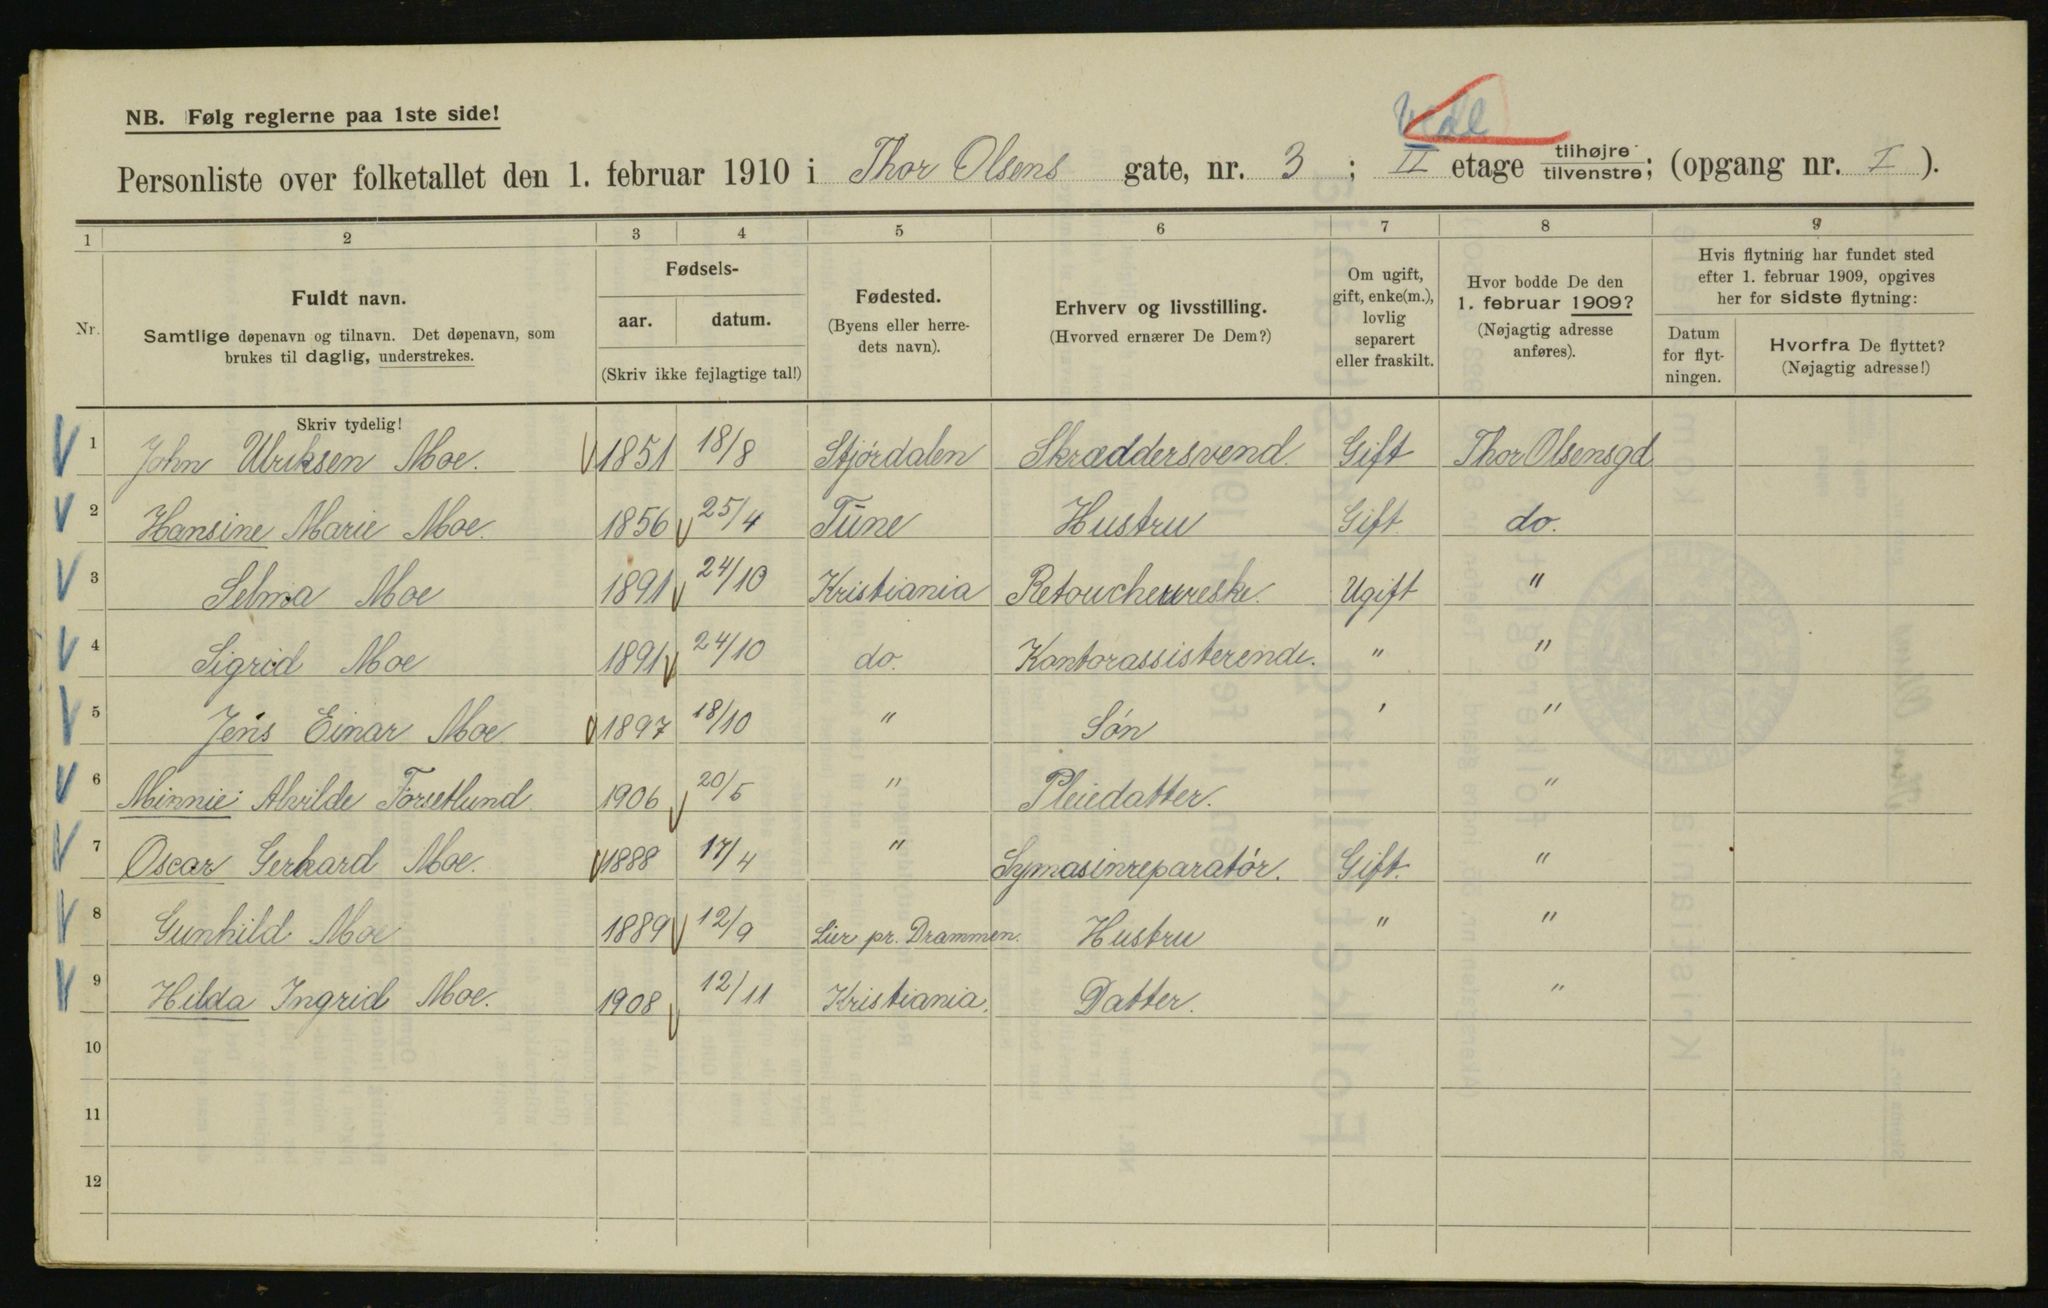 NB. Følg reglerne paa 1ste side!
Personliste over folketallet den 1. februar 1910 i Thor Olsens gate, nr. 3 ; II etage tilhøjre tilvenstre; (opgang nr. I ).
1 2 3 4 5 6 7 8 9
Nr. Fuldt navn. Samtlige døpenavn og tilnavn. Det døpenavn, som brukes til daglig, understrekes.
Fødsels- aar. datum. (Skriv ikke fejlagtige tal!)
Fødested. (Byens eller herredets navn).
Erhverv og livsstilling. (Hvorved ernærer De Dem?)
Om ugift, gift, enke(m.), lovlig separert eller fraskilt.
Hvor bodde De den 1. februar 1909? (Nøjagtig adresse anføres).
Hvis flytning har fundet sted efter 1. februar 1909, opgives her for sidste flytning:
Datum for flytningen.
Hvorfra De flyttet? (Nøjagtig adresse!)
Skriv tydelig!
1 John Ulriksen Moe. 1851 18/8 Stjørdalen Skræddersvend. Gift Thor Olsensgd
2 Hansine Marie Moe. 1856 25/4 Tune Hustru Gift. do.
3 Selma Moe 1891 24/10 Kristiania Retoucheureske. Ugift "
4 Sigrid Moe 1891 24/10 do. Kontorassisterende. " "
5 Jens Einar Moe 1897 18/10 " Søn ' "
6 Minnie Alvilde Forsetlund 1906 20/5 " Pleiedatter. "
7 Oscar Gerhard Moe. 1888 17/4 " Symasinreparatør. Gift. "
8 Gunhild Moe 1889 12/9 Lier pr. Drammen. Hustru " "
9 Hilda Ingrid Moe. 1908 12/11 Kristiania. Datter. "
10
11
12